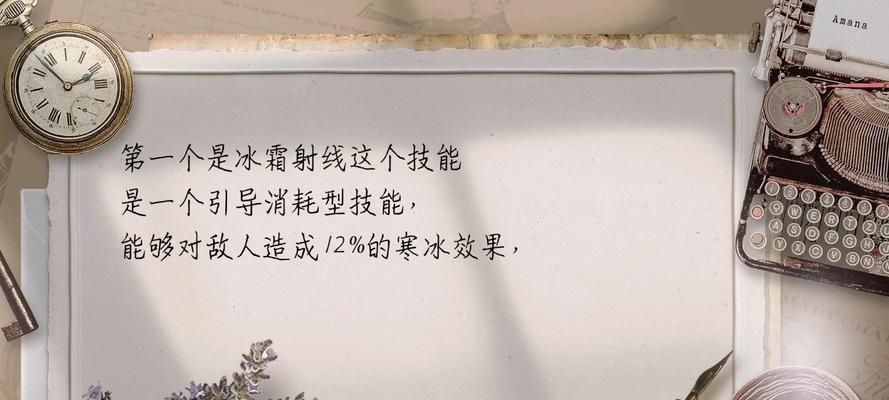 Amana
第一个是冰霜射线这个技能
是一个引导消耗型技能，
能够对敌人造成12%的寒冰效果，